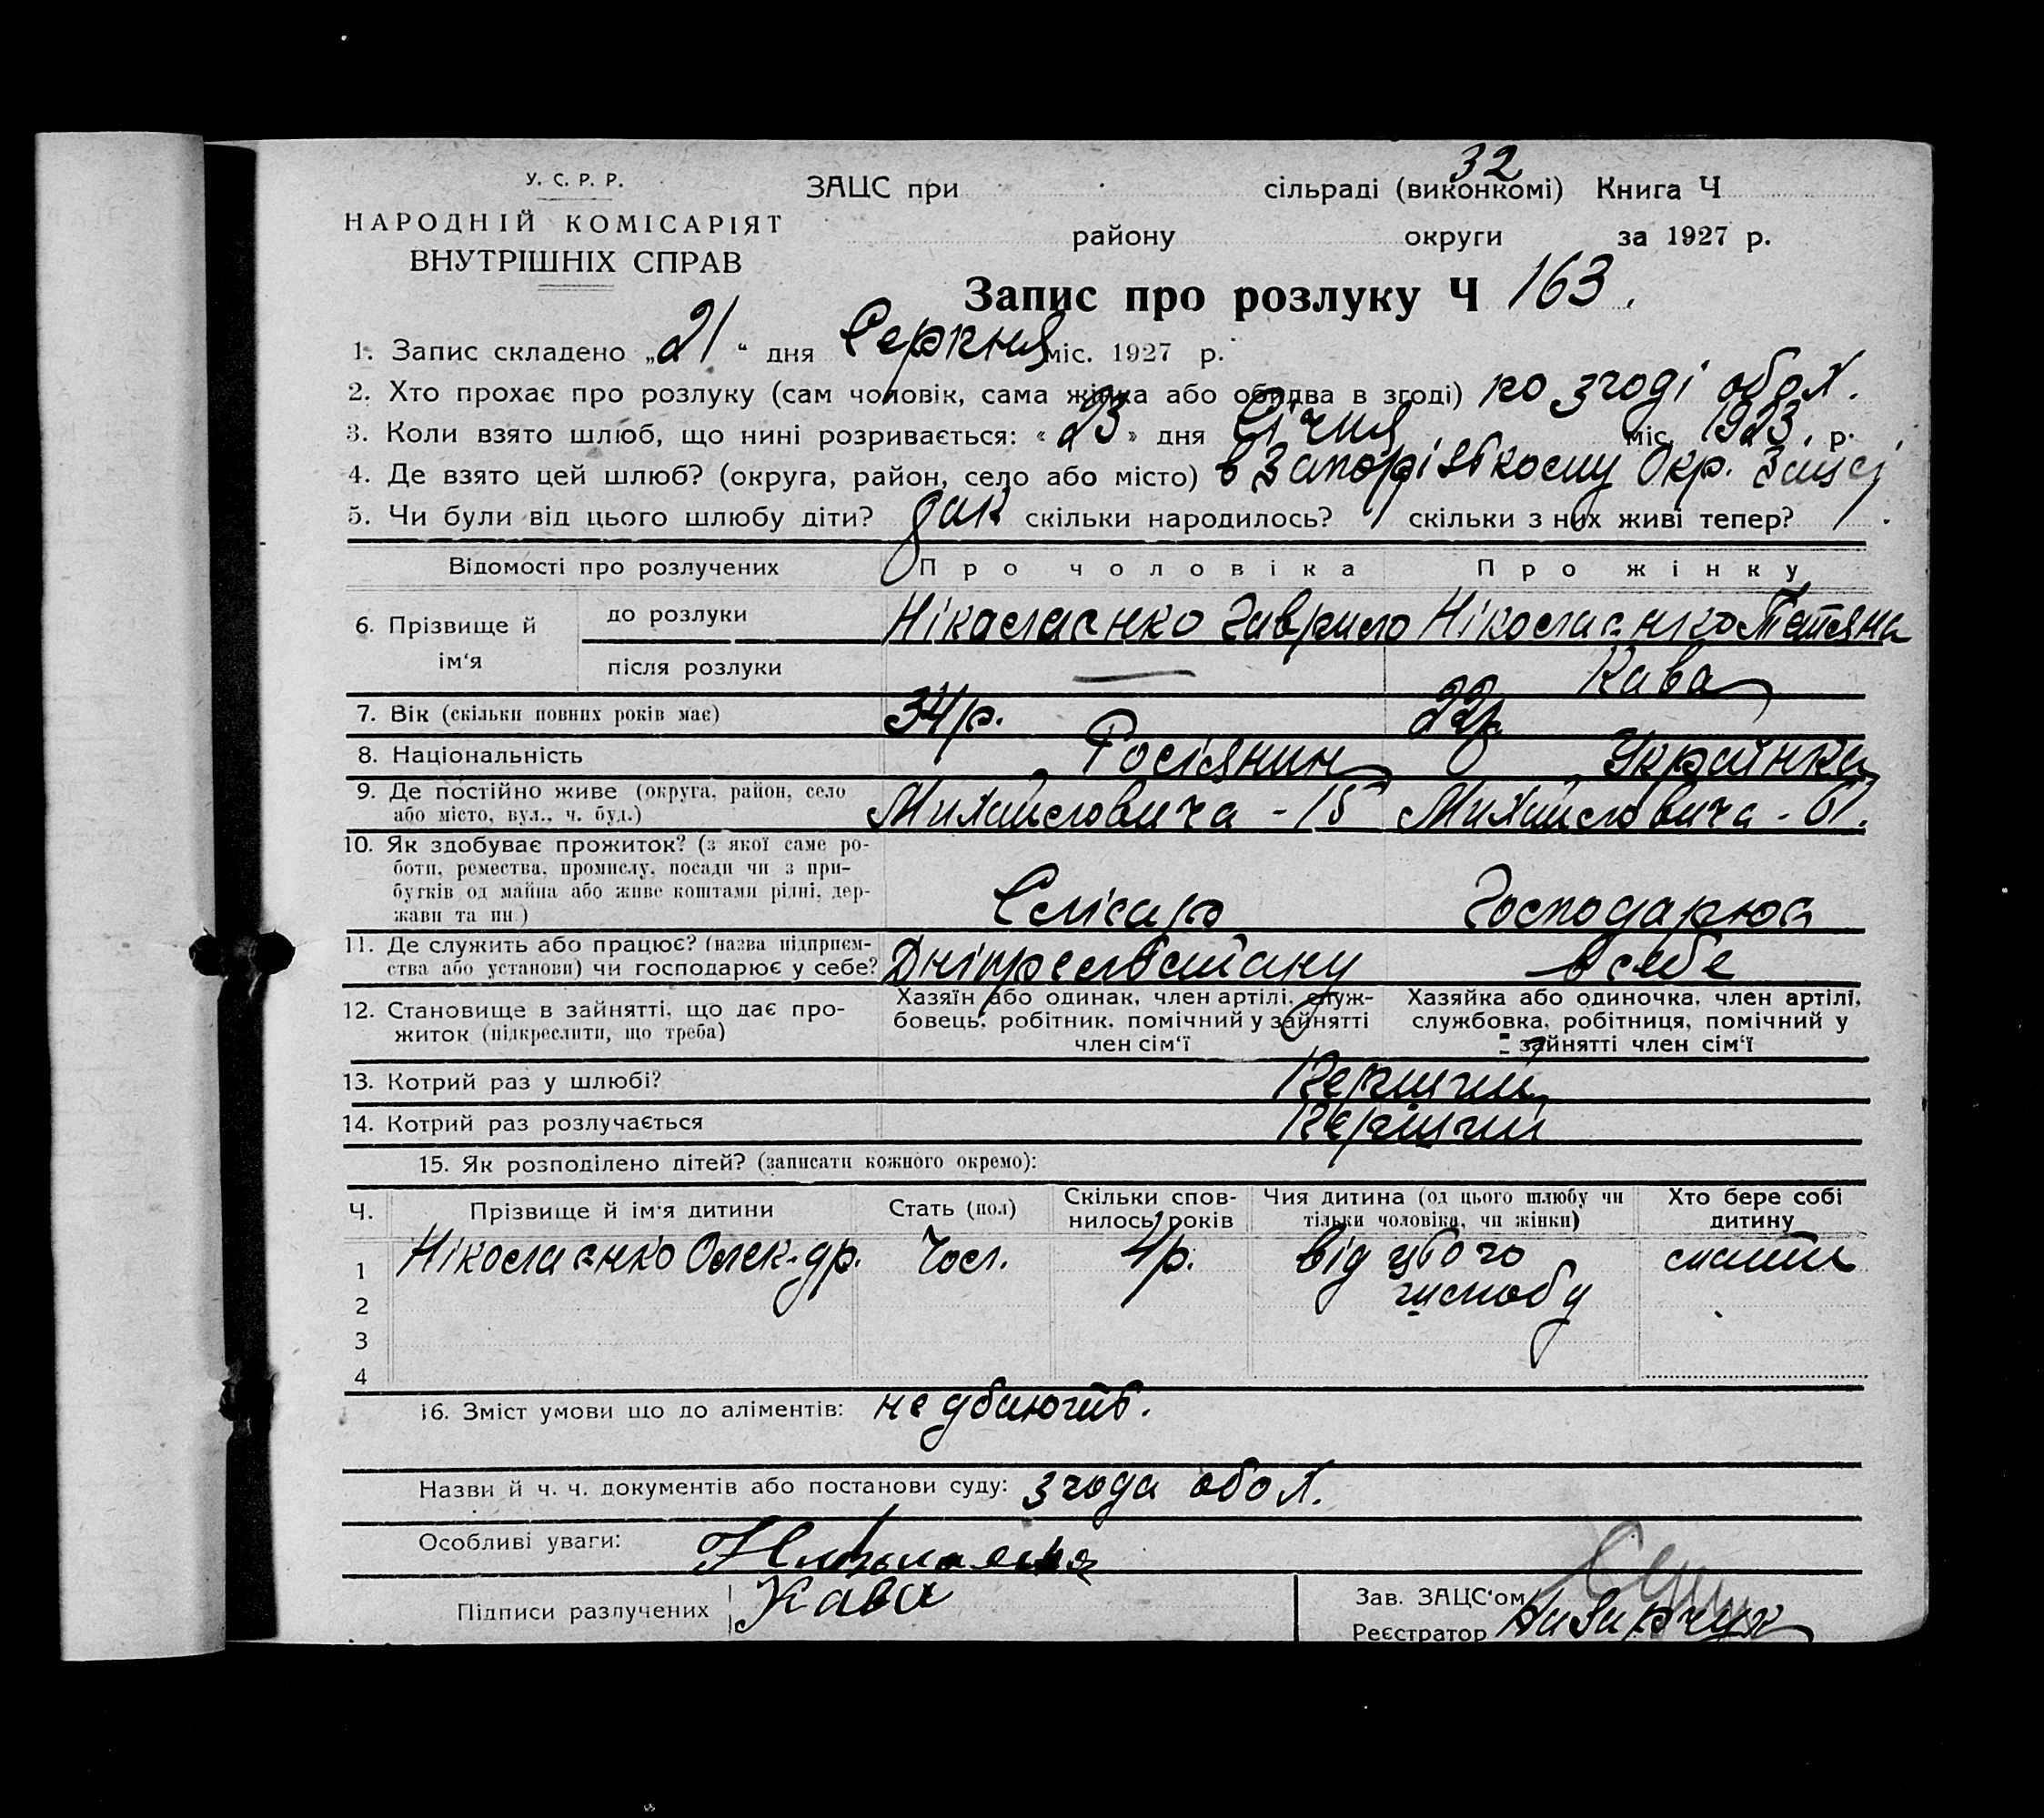 32
У. С. Р. Р.
НАРОДНІЙ КОМІСАРІЯТ
ВНУТРІШНІХ СПРАВ
ЗАЦС при сільраді (виконкомі) Книга Ч
району округи за 1927 р.
Запис про розлуку Ч 163.
1. Запис складено „21“ дня Серпня міс. 1927 р.
2. Хто прохає про розлуку (сам чоловік, сама жінка або обидва в згоді) по згоді обох.
3. Коли взято шлюб, що нині розривається: «23» дня Січня міс. 1923 р.
4. Де взято цей шлюб? (округа, район, село або місто) в Запорізькому Окр. Зацсі
5. Чи були від цього шлюбу діти? так скільки народилось? 1 скільки з них живі тепер? 1.
Відомості про розлучених Про чоловіка Про жінку
6. Прізвище й ім'я до розлуки Ніколаєнко Гаврило Ніколаєнко Тетяна
після розлуки — Кава
7. Вік (скільки повних років має) 34 р. 22 р.
8. Національність Росіянин Українка
9. Де постійно живе (округа, район, село
або місто, вул., ч. буд.) Михайловича - 15 Михайловича - 61.
10. Як здобуває прожиток? (з якої саме ро-
боти, ремества, промислу, посади чи з при-
бутків од майна або живе коштами рідні, дер-
жави та ин.) Слісар Господарює
11. Де служить або працює? (назва підприєм-
ства або установи) чи господарює у себе? в себе
12. Становище в зайнятті, що дає про-
житок (підкреслити, що треба)
Хазяїн або одинак, член артілі, служ-
бовець, робітник, помічний у зайнятті
член сім'ї
Хазяйка або одиночка, член артілі,
службовка, робітниця, помічний у
зайнятті член сім'ї
13. Котрий раз у шлюбі? Перший
14. Котрий раз розлучається Перший
15. Як розподілено дітей? (записати кожного окремо):
Ч. Прізвище й ім'я дитини Стать (пол) Скільки спов-
нилось років Чия дитина (од цього шлюбу чи
тільки чоловіка, чи жінки) Хто бере собі
дитину
1 Ніколаєнко Олек-др. Чол. 4 р. від цього
шлюбу мати
2
3
4
16. Зміст умови що до аліментів: не дбають.
Назви й ч. ч. документів або постанови суду: згода обох.
Особливі уваги:
Підписи разлучених Кава
Зав. ЗАЦС'ом
Реєстратор